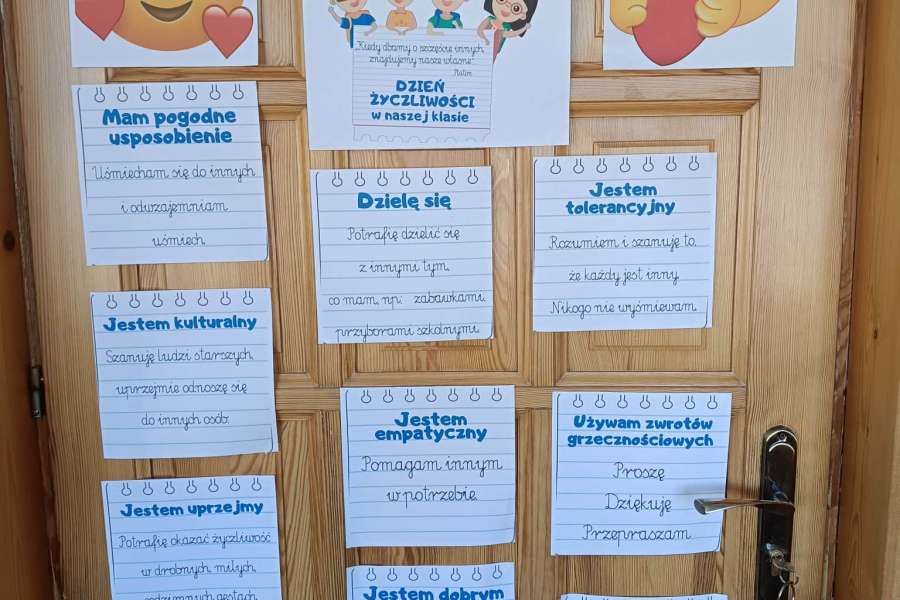 „Kiedy dbamy o szczęście innych,
znajdujemy nasze własne"
Platon
DZIEŃ
ŻYCZLIWOŚCI
w naszej klasie
Mam pogodne
usposobienie
Uśmiecham się do innych
i odwzajemniam
uśmiech.
Dzielę się
Potrafię dzielić się
z innymi tym,
co mam, np. zabawkami,
przyborami szkolnymi.
Jestem
tolerancyjny
Rozumiem i szanuję to,
że każdy jest inny.
Nikogo nie wyśmiewam.
Jestem kulturalny
Szanuję ludzi starszych,
uprzejmie odnoszę się
do innych osób.
Jestem
empatyczny
Pomagam innym
w potrzebie.
Używam zwrotów
grzecznościowych
Proszę
Dziękuję
Przepraszam
Jestem uprzejmy
Potrafię okazać życzliwość
w drobnych, miłych,
codziennych gestach.
Jestem dobrym